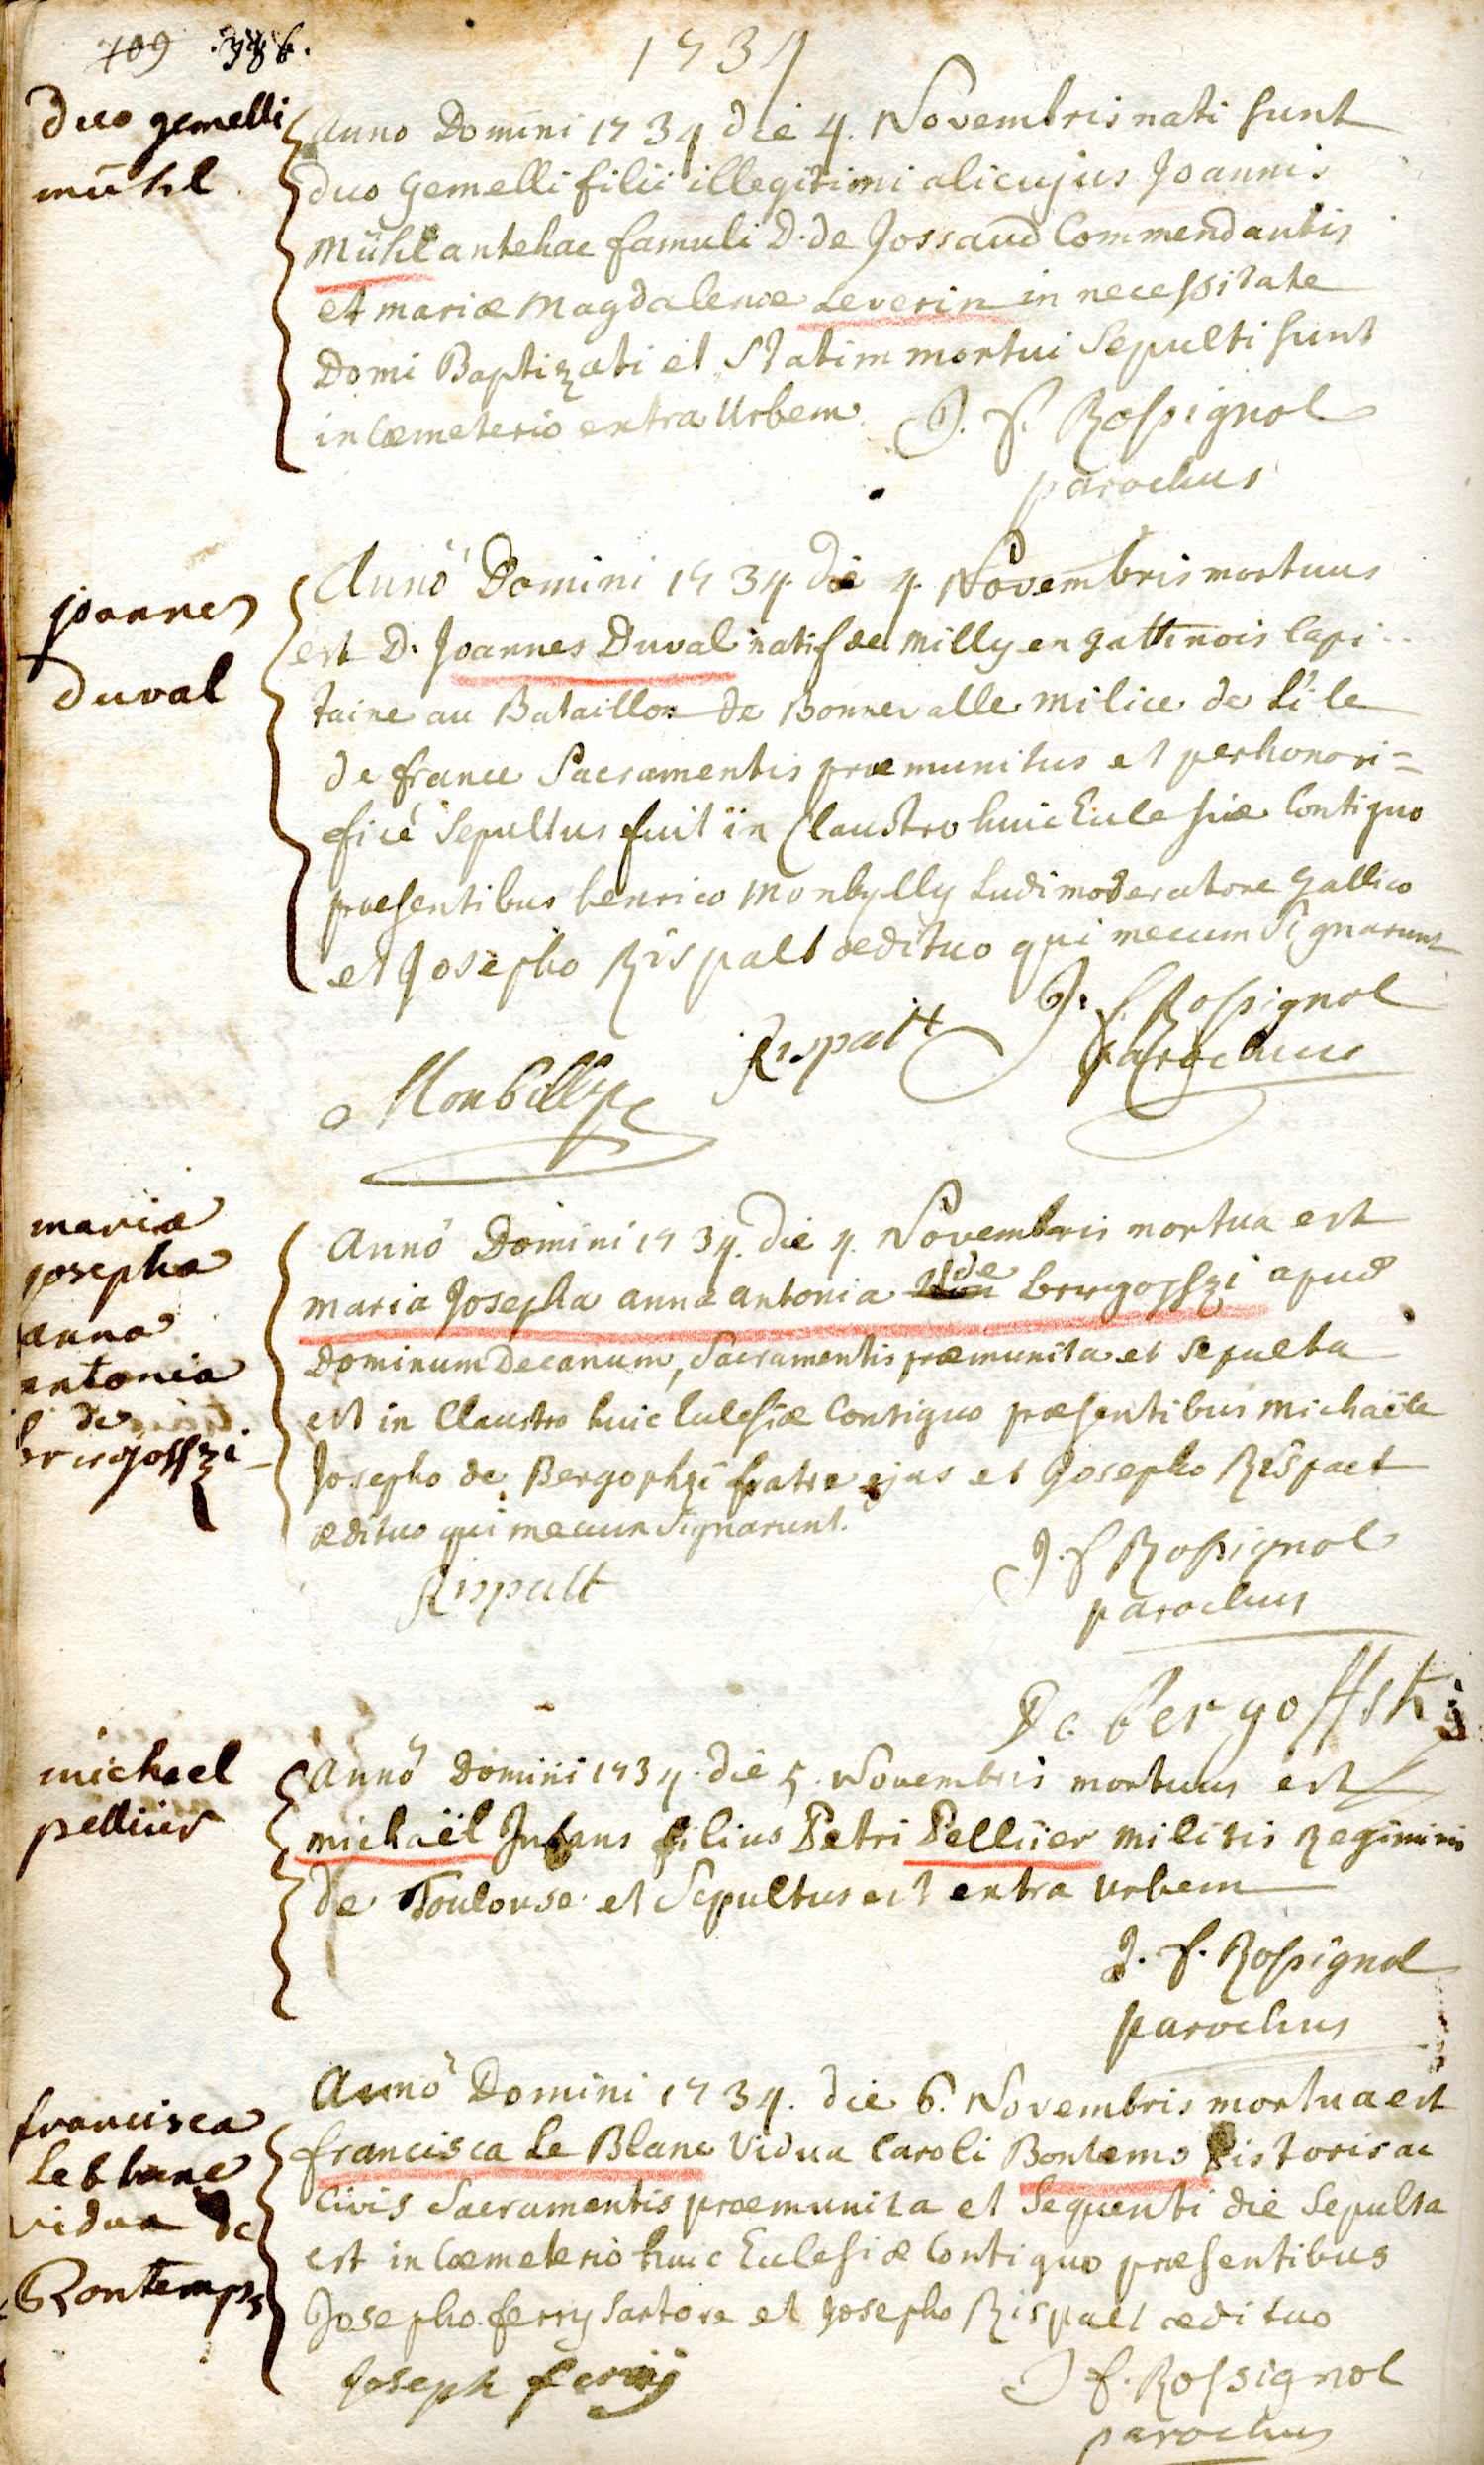 709 .386.
1734
duo gemelli
mühl
Anno Domini 1734 die 4. Novembris nati sunt
duo gemelli filii illegitimi alicujus Joannis
Mühl antehac famuli D. de Jossaud Commendantis
et mariæ Magdalenæ Leverin in necessitate
Domi Baptizati et Statim mortui Sepulti sunt
in Cœmeterio extra Urbem. J. f. Rossignol
parochus
joannes
duval
Annò Domini 1734. die 4. Novembris mortuus
est D. Joannes Duval natif de Milly en gattinois Capi-
taine au Bataillon de Bonnevalle milice de L'ile
de france Sacramentis præmunitus et perhonori=
ficé Sepultus fuit in Claustro huic Eclesiæ Contiguo
præsentibus henrico Monbylly Ludimoderatore gallico
et Josepho Rispalt ædituo qui mecum Signarunt
Monbilly Rispalt J. f. Rossignol
parochus
maria
josepha
anna
antonia
de
bergosszi
Annò Domini 1734. die 4. Novembris mortua est
maria Josepha anna antonia de bergosszi apud
Dominum Decanum, Sacramentis præmunita et sepulta
est in Claustro huic Eclesiæ Contiguo præsentibus Michaële
Josepho de Bergophzi fratre ejus et Josepho Rispalt
ædituo qui mecum Signarunt.
Rispalt J. f Rossignol
parochus
De bergoffski
michael
pelliier
Annò Domini 1734. die 5. Novembris mortuus est
michaël Infans filius Petri Pelliier militis Regiminis
de Toulouse et Sepultus est extra urbem
J. f. Rossignol
parochus
francisca
Leblanc
vidua de
Bontemps
Annò Domini 1734. die 6. Novembris mortua est
francisca Le Blanc Vidua Caroli Bontems Pistoris ac
Civis Sacramentis præmunita et Sequenti die Sepulta
est in Cœmeterio huic Eclesiæ Contiguo præsentibus
Josepho ferry Sartore et Josepho Rispalt ædituo
Joseph ferrij J f. Rossignol
parochus